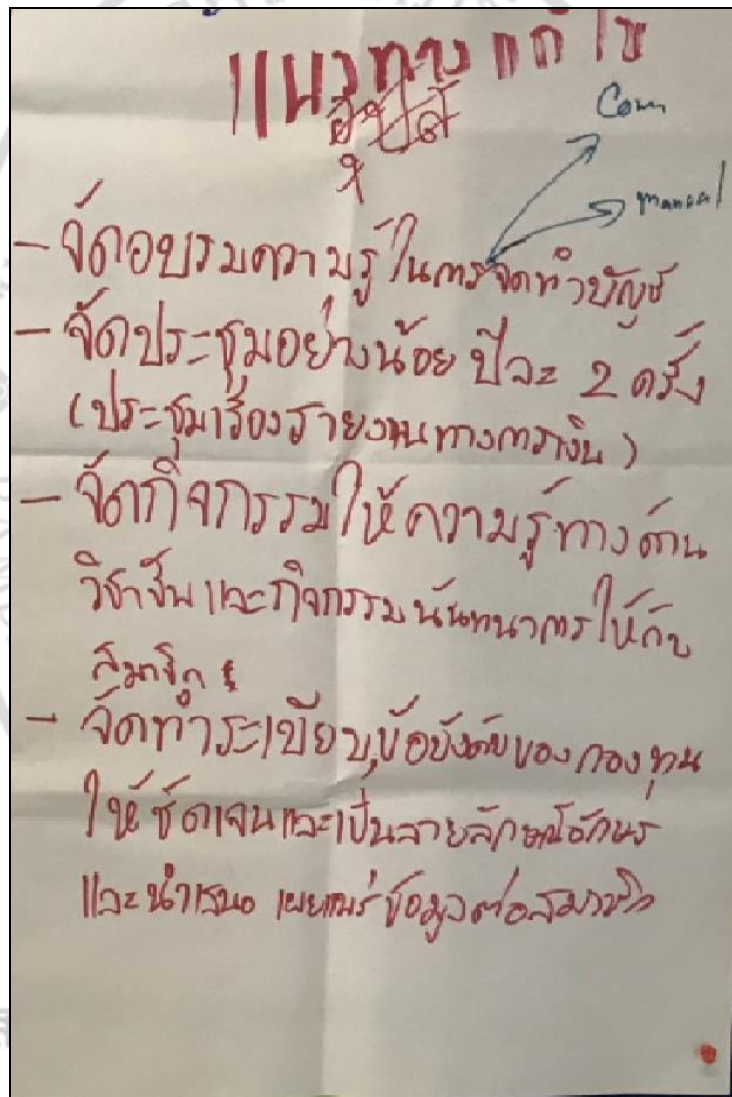 แนวทางแก้ไข
Com
manual
- จัดอบรมความรู้ในการจัดทำบัญชี
- จัดประชุมอย่างน้อย ปีละ 2 ครั้ง
(ประชุมเรื่องรายงานทางการเงิน)
- จัดกิจกรรมให้ความรู้ทางด้าน
วิชาชีพและกิจกรรมนันทนาการให้กับ
สมาชิก
- จัดทำระเบียบ,ข้อบังคับของกองทุน
ให้ชัดเจนและเป็นลายลักษณ์อักษร
และนำเสนอ เผยแพร่ข้อมูลต่อสมาชิก